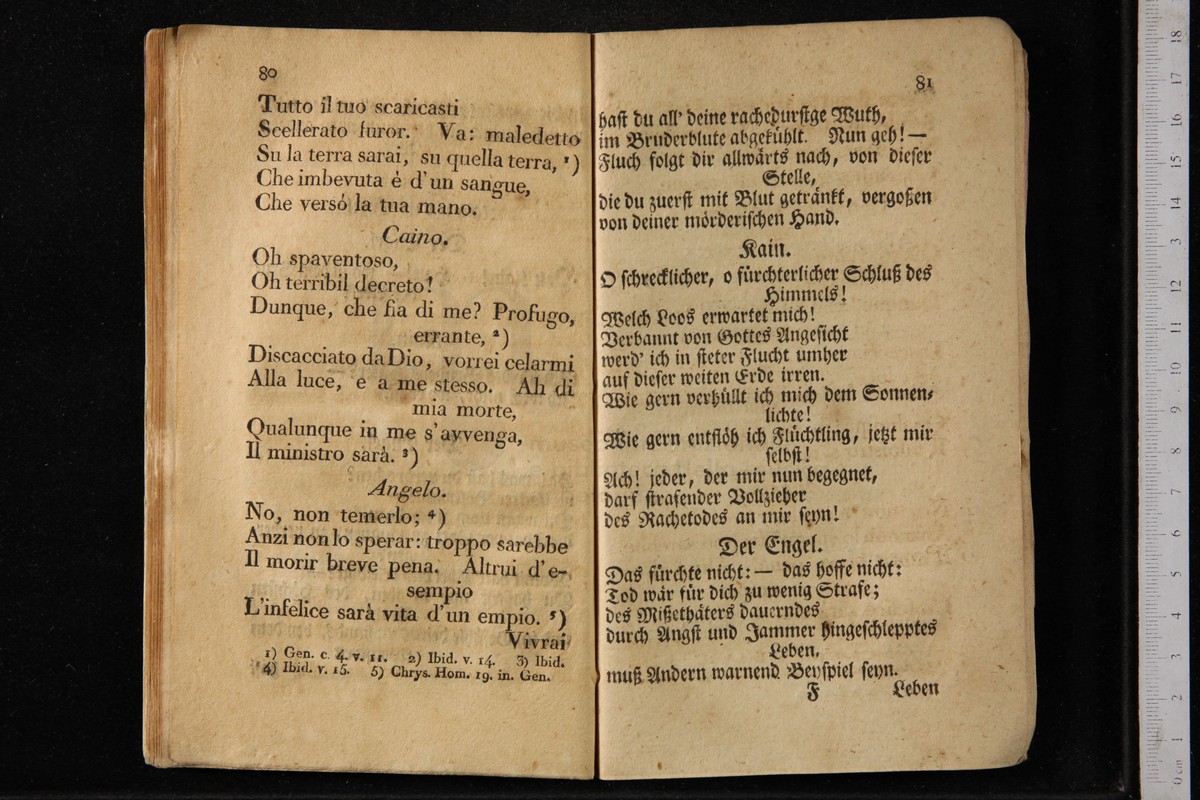 80
Tutto il tuo scaricasti
Scellerato furor. Va: maledetto
Su la terra sarai, su quella terra, ¹)
Che imbevuta é d'un sangue,
Che versó la tua mano.
Caino.
Oh spaventoso,
Oh terribil decreto!
Dunque, che fia di me? Profugo,
errante, ²)
Discacciato da Dio, vorrei celarmi
Alla luce, e a me stesso. Ah di
mia morte,
Qualunque in me s'avvenga,
Il ministro sarà. ³)
Angelo.
No, non temerlo; ⁴)
Anzi non lo sperar: troppo sarebbe
Il morir breve pena. Altrui d'e-
sempio
L'infelice sarà vita d'un empio. ⁵)
Vivrai
1) Gen. c. 4. v. 11. 2) Ibid. v. 14. 3) Ibid.
4) Ibid. v. 15. 5) Chrys. Hom. 19. in. Gen.
81
hast du all' deine rachedurstge Wuth,
im Bruderblute abgekühlt. Nun geh! —
Fluch folgt dir allwärts nach, von dieser
Stelle,
die du zuerst mit Blut getränkt, vergoßen
von deiner mörderischen Hand.
Kain.
O schrecklicher, o fürchterlicher Schluß des
Himmels!
Welch Loos erwartet mich!
Verbannt von Gottes Angesicht
werd' ich in steter Flucht umher
auf dieser weiten Erde irren.
Wie gern verhüllt ich mich dem Sonnen-
lichte!
Wie gern entflöh ich Flüchtling, jetzt mir
selbst!
Ach! jeder, der mir nun begegnet,
darf strafender Vollzieher
des Rachetodes an mir seyn!
Der Engel.
Das fürchte nicht: — das hoffe nicht:
Tod wär für dich zu wenig Strafe;
des Mißethäters dauerndes
durch Angst und Jammer hingeschlepptes
Leben,
muß Andern warnend Beyspiel seyn.
F Leben
0 cm 1 2 3 4 5 6 7 8 9 10 11 12 13 14 15 16 17 18